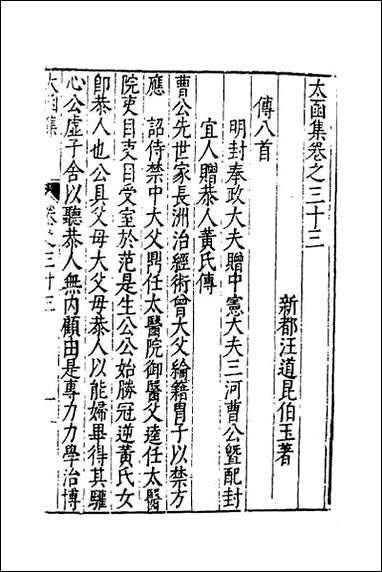 太函集卷之三十三
新都汪道昆伯玉著
傳八首
明封奉政大夫贈中憲大夫三河曹公暨配封
宜人贈恭人黃氏傳
曹公先世家長洲治經術曾大父綸籍胄子以禁方
應 詔侍禁中大父騁任太醫院御醫父逵任太醫
院吏目吏目受室於范是生公公始勝冠逆黃氏女
卽恭人也公具父母大父母恭人以能婦畢得其驩
心公虛子舍以聽恭人無內顧由是專力力學治博
太函集 卷之三十三 一